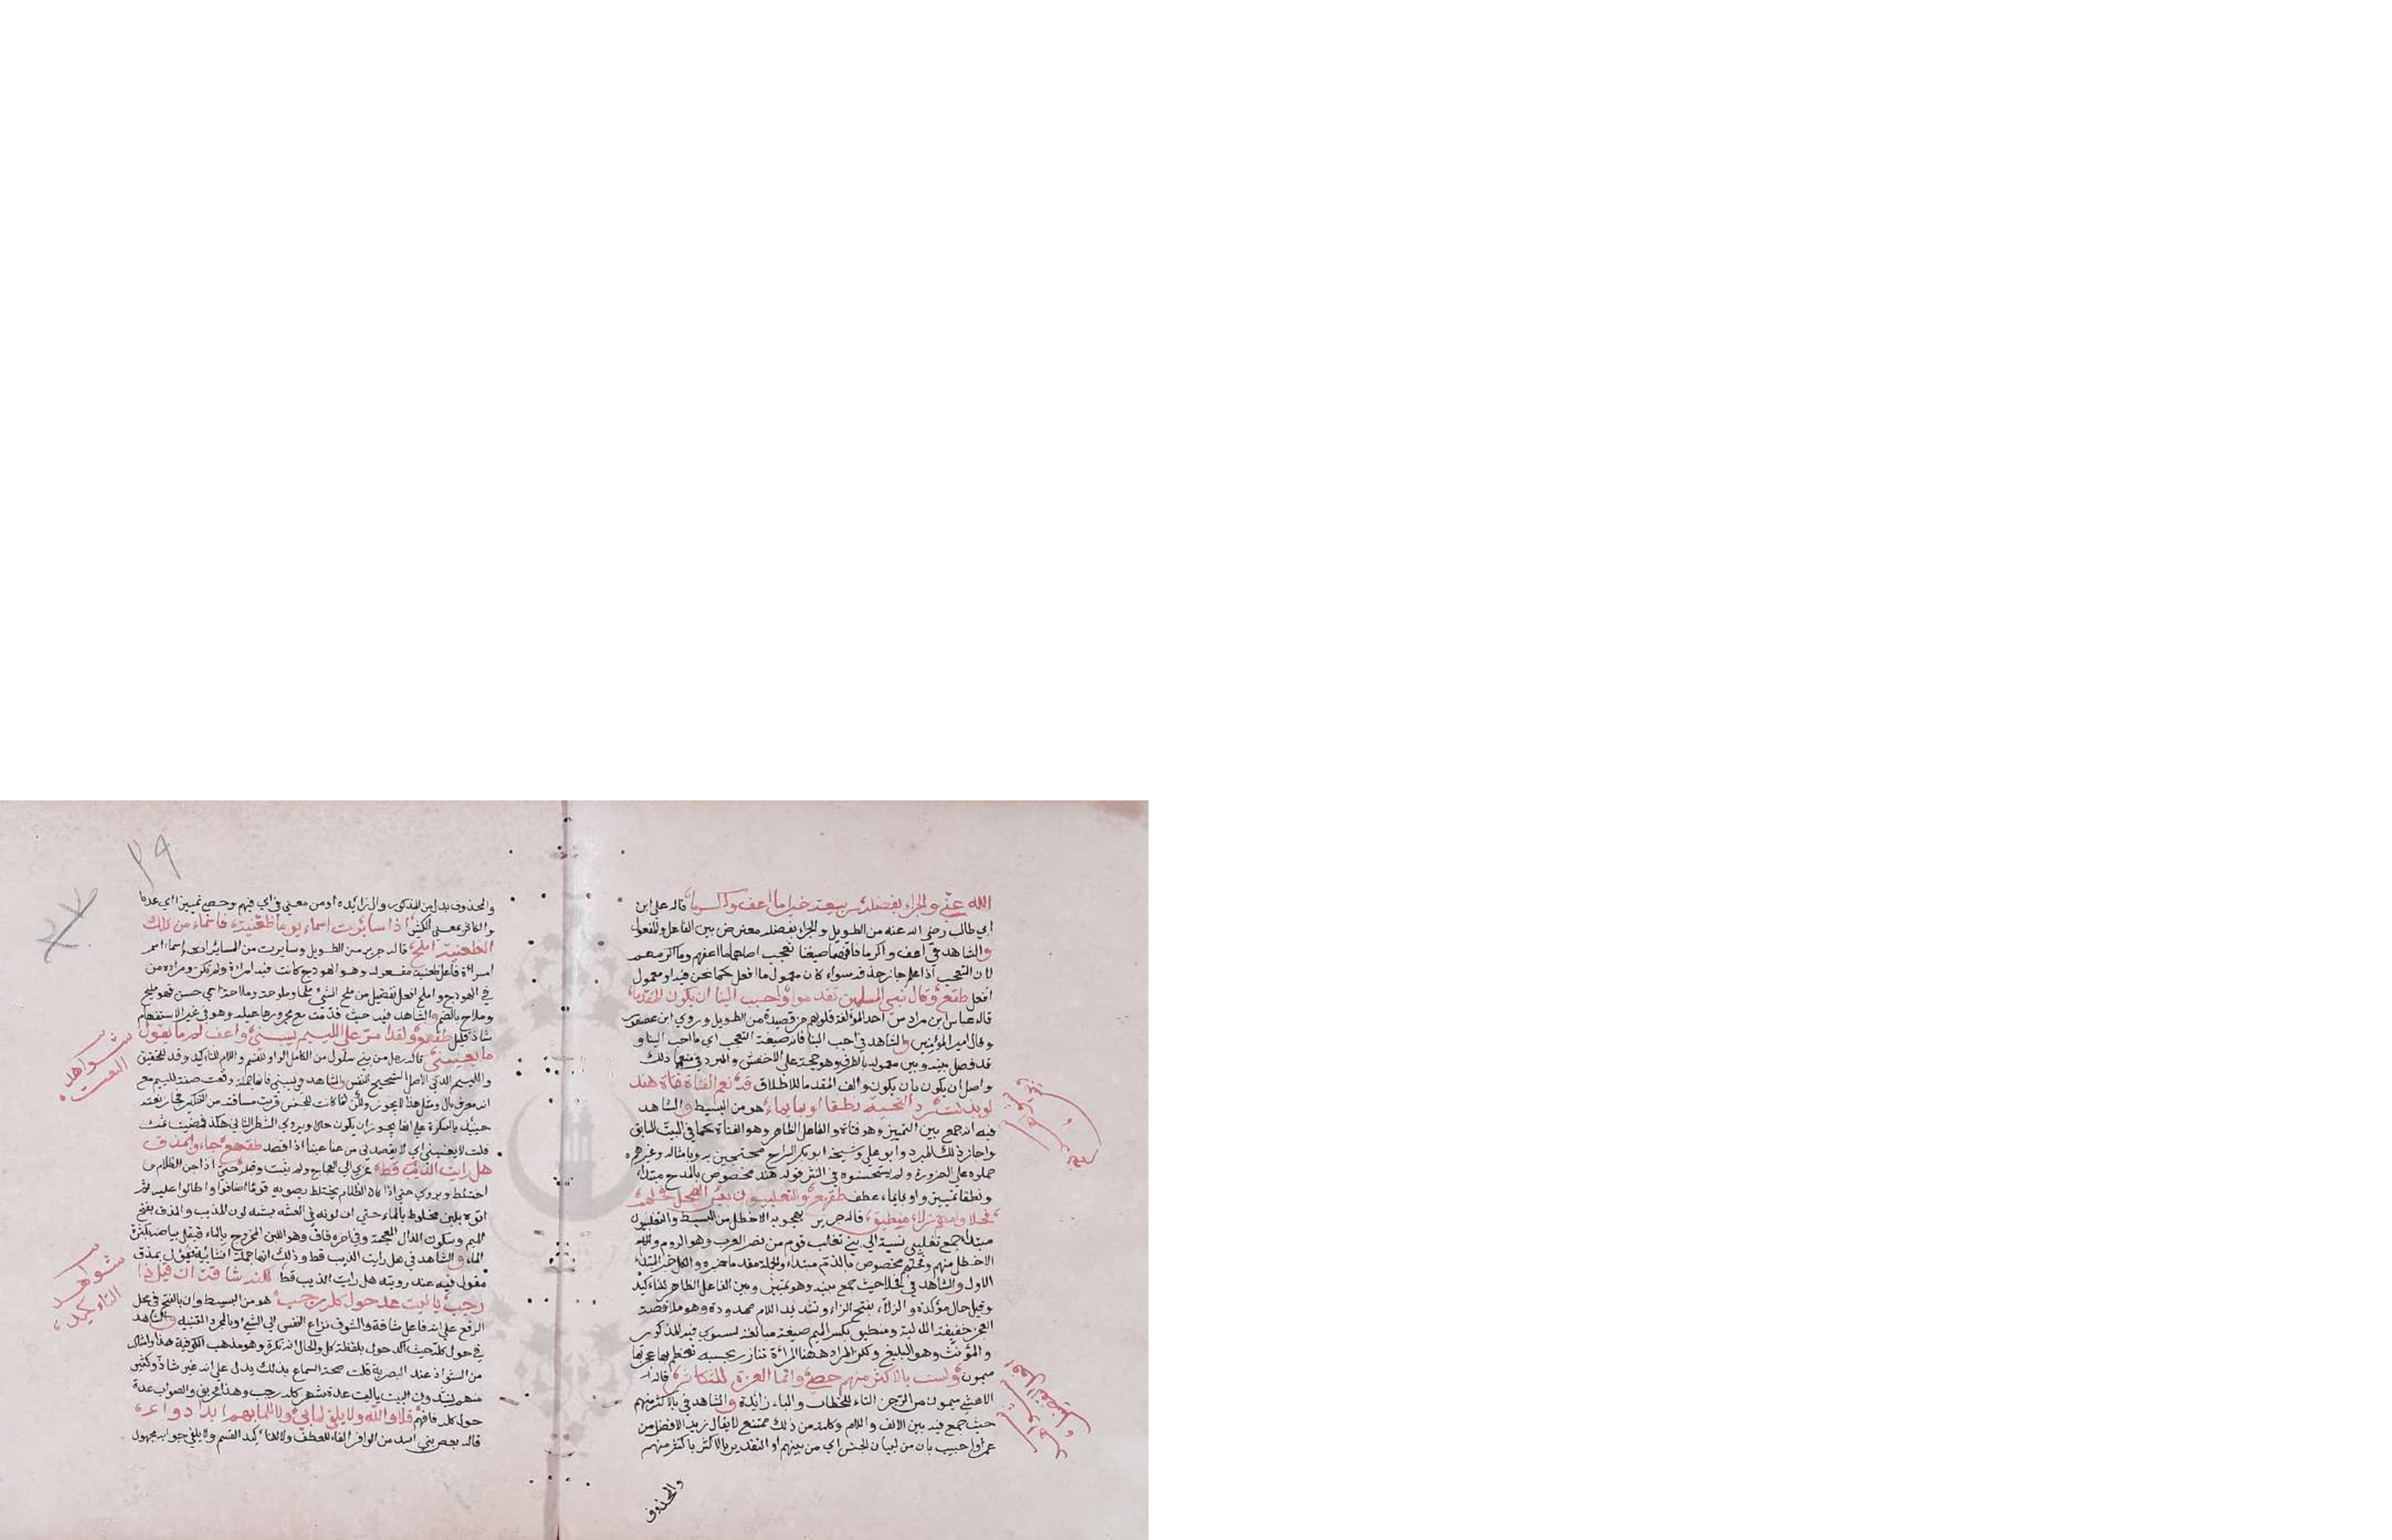 الله عني والجزاء بفضله ربيعة خيرا ما اعف واكرما قاله علي ابن
ابي طالب رضي الله عنه من الطويل والجزاء بفضله معترض بين الفاعل والمفعول
والشاهد في اعف واكرما فانهما صيغتا تعجب اصلهما ما اعفهم وما اكرمهم
لان التعجب اذا علم جاز حذفه سواء كان معمول ما افعل كما نحن فيه او معمول
افعل طقع وقال نبي المسلمين تقدموا واحبب الينا ان يكون المقدما
قاله عباس ابن مرداس احد المؤلفة قلوبهم من قصيدة من الطويل وروي ابن عصفور
وقال امير المؤمنين والشاهد في احبب الينا فانه صيغة التعجب اي ما احب الينا و
قد فصل بينه وبين معموله بالظرف وهو حجة علي الاخفش والمبرد في منعهما ذلك
واصل ان يكون بان يكون والف المقدما للاطلاق قد نعم الفتاة فتاة هند
لو بذلت رد التحية نطقا او بايماء هو من البسيط والشاهد
فيه انه جمع بين التمييز وهو فتاة والفاعل الظاهر وهو الفتاة كما في البيت السابق
واجاز ذلك المبرد وابو علي وشيخه ابو بكر السراج محتجين به وبامثاله وغيرهم
حملوه علي الضرورة ولم يستحسنوه في النثر قوله هند مخصوص بالمدح مبتداء
ونطقا تمييز واو بايماء عطف طقهع والتغلبيون بئس الفحل فحلهم
فحلا وامهم زلاء منطيق قاله جرير يهجو به الاخطل من البسيط والتغلبيون
مبتداء جمع تغلبي نسبة الي بني تغلب قوم من نصر العرب وهو الروم والام
الاخطل منهم وفحلهم مخصوص بالذم مبتداء والجملة مقدما خبره والكل خبر المبتداء
الاول والشاهد في فحلا حيث جمع بينه وهو تمييز وبين الفاعل الظاهر للتاكيد
وقيل حال مؤكدة والزلاء بفتح الزاء وتشديد اللام ممدودة وهو ملاقصة
العجز خفيفة الالية ومنطيق بكسر الميم صيغة مبالغة يستوي فيه المذكور
والمؤنث وهو البليغ ولكن المراد ههنا المراة تتازر بحسبه تعظم بها عجزتها
ميمون ولست بالاكثر منهم حصي وانما العزة للكاثر قاله
الاعشي ميمون من الرجز التاء للخطاب والباء زائدة والشاهد في بالاكثر منهم
حيث جمع فيه بين الالف واللام وكلمة من ذلك ممتنع لا يقال زيد الافضل من
عمرو واجيب بان من لبيان الجنس اي من بينهم او التقدير بالاكثر باكثر منهم
والمحذوف
٢٩
والمحذوف بدل من المذكور او الزائدة او من بمعني في اي فيهم وحصي تمييز اي عددا
والكاثر بمعني الكثير اذا سايرت اسماء يوما ظعينة فاسماء من تلك
الظعينة املح قاله جرير من الطويل وسايرت من المسايرة واسماء اسم
امراة فاعل ظعينة مفعوله وهو الهودج كانت فيه امراة ولم تكن ومراده من
في الهودج واملح افعل تفضيل من ملح الشيء ملحا وملوحة وملاحة اي حسن فهو مليح
وملاح بالضم والشاهد فيه حيث قدمت مع مجرورها عليه وهو في غير الاستفهام
شاذ قليل طقهعو ولقد امر علي اللئيم يسبني واعف ثم ما يقول
ما يعنيني قاله رجل من بني سلول من الكامل الواو للقسم واللام للتاكيد وقد للتحقيق
واللئيم الدني الاصل الشحيح النفس والشاهد في يسبني فانها جملة وقعت صفة للئيم مع
انه معرف بال ومثل هذا لا يجوز ولكن لما كانت للجنس قربت مسافته من التنكير فجاز نعته
حينئذ بالنكرة علي انها يجوز ان يكون حالا ويروي الشطر الثاني هكذا فمضيت ثمت
قلت لا يعنيني اي لا يقصدني من عنا عينا اذا قصد طقهعو جاءوا بمذق
هل رايت الذئب قط عزي الي العجاج ولم يثبت وقبله حتي اذا جن الظلام و
اختلط ويروي حتي اذا كاد الظلام يختلط يصف به قوما اضافوا واطالوا عليه ثم
اتوه بلبن مخلوط بالماء حتي ان لونه في العشية يشبه لون الذيب والمذق بفتح
الميم وسكون الذال المعجمة وفي اخره قاف وهو اللبن الممزوج بالماء فيقل بياضه لكثرة
الماء والشاهد في هل رايت الذيب قط وذلك انها جملة انشائية فتؤول بمذق
مقول فيه عند رويته هل رايت الذيب قط لكنه شاقه ان قيل ذا
رجب يا ليت عدة حول كله رجب هو من البسيط وان بالفتح في محل
الرفع علي انه فاعل شاقه والشوق نزاع النفس الي الشيء ويا لمجرد التنبيه والشاهد
في حول كله حيث اكد حول بلفظة كل والحال انه نكرة وهو مذهب الكوفية هذا وامثاله
من الشواذ عند البصرية قلت صحة السماع بذلك يدل علي انه غير شاذ وكثير
منهم ينشدون البيت يا ليت عدة شهر كله رجب وهذا تحريف والصواب عدة
حول كله فافهم فلا والله لا يلفي لما بي ولا للما بهم ابدا دواء
قاله بعض بني اسد من الوافر الفاء للعطف ولا لتاكيد القسم ولا يلفي جوابه مجهول
شواهد
النعت
شواهد
التاوكيد
شواهد
افعل التفضيل